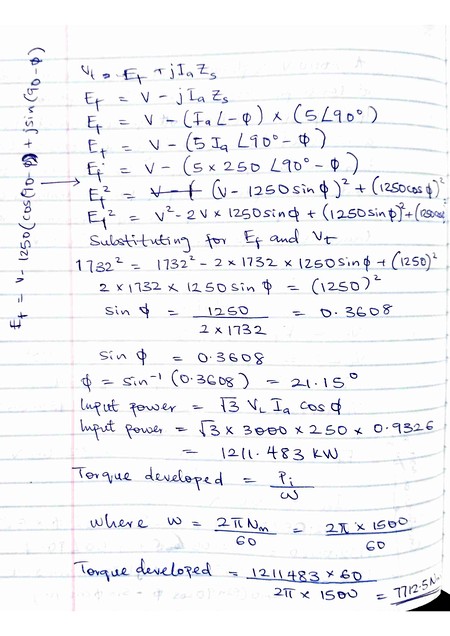 V_t = E_f + jI_a Z_s
E_f = V - jI_a Z_s
E_f = V - (I_a ∠-ϕ) × (5∠90°)
E_f = V - (5 I_a ∠90° - ϕ)
E_f = V - (5 × 250 ∠90° - ϕ)
E_f² = (V - 1250 sin ϕ)² + (1250 cos ϕ)²
E_f² = V² - 2V × 1250 sin ϕ + (1250 sin ϕ)² + (1250
Substituting for E_f and V_t
1732² = 1732² - 2 × 1732 × 1250 sin ϕ + (1250)²
2 × 1732 × 1250 sin ϕ = (1250)²
sin ϕ = 1250 / 2 × 1732 = 0.3608
sin ϕ = 0.3608
ϕ = sin⁻¹ (0.3608) = 21.15°
Input power = √3 V_L I_a cos ϕ
Input power = √3 × 3000 × 250 × 0.9326
= 1211.483 kW
Torque developed = P_i / ω
where ω = 2π N_m / 60 = 2π × 1500 / 60
Torque developed = 1211483 × 60 / 2π × 1500 = 7712.5 N
E_f = V - 1250 (cos(90 - ϕ) + j sin(90 - ϕ)